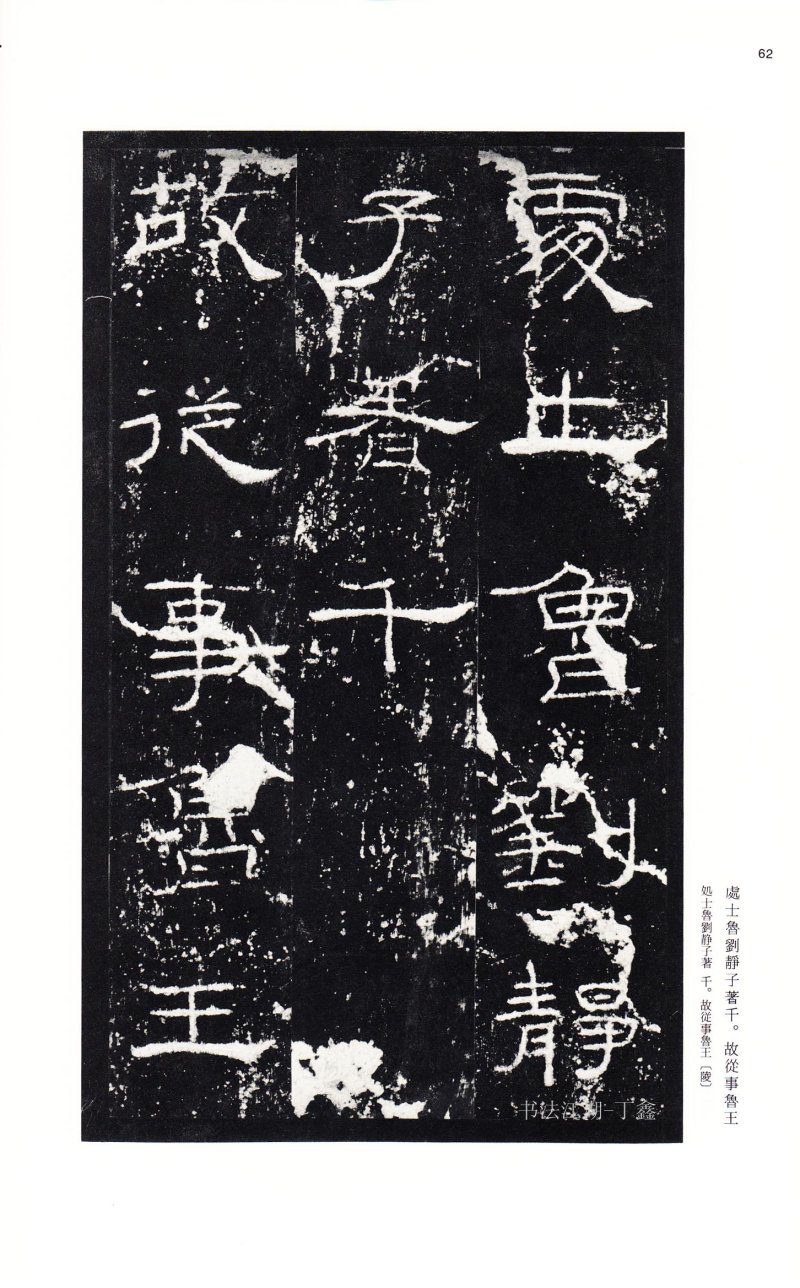 62
處士魯劉靜
子著千
故從事魯王
處士魯劉靜子著千。故從事魯王
処士魯劉静子著 千。故従事魯王〔陵〕
书法江湖-丁鑫